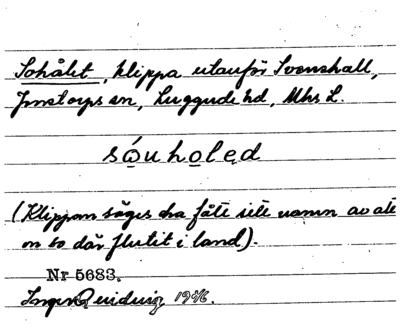 Sohålet, klippa utanför Svenshall,
Jonstorps sn, Luggude hd, Mhs L.
sǫ́uhǫlęd
(Klippan säges ha fått sitt namn av att
en so där flutit i land).
Nr 5683.
Inger 1946.